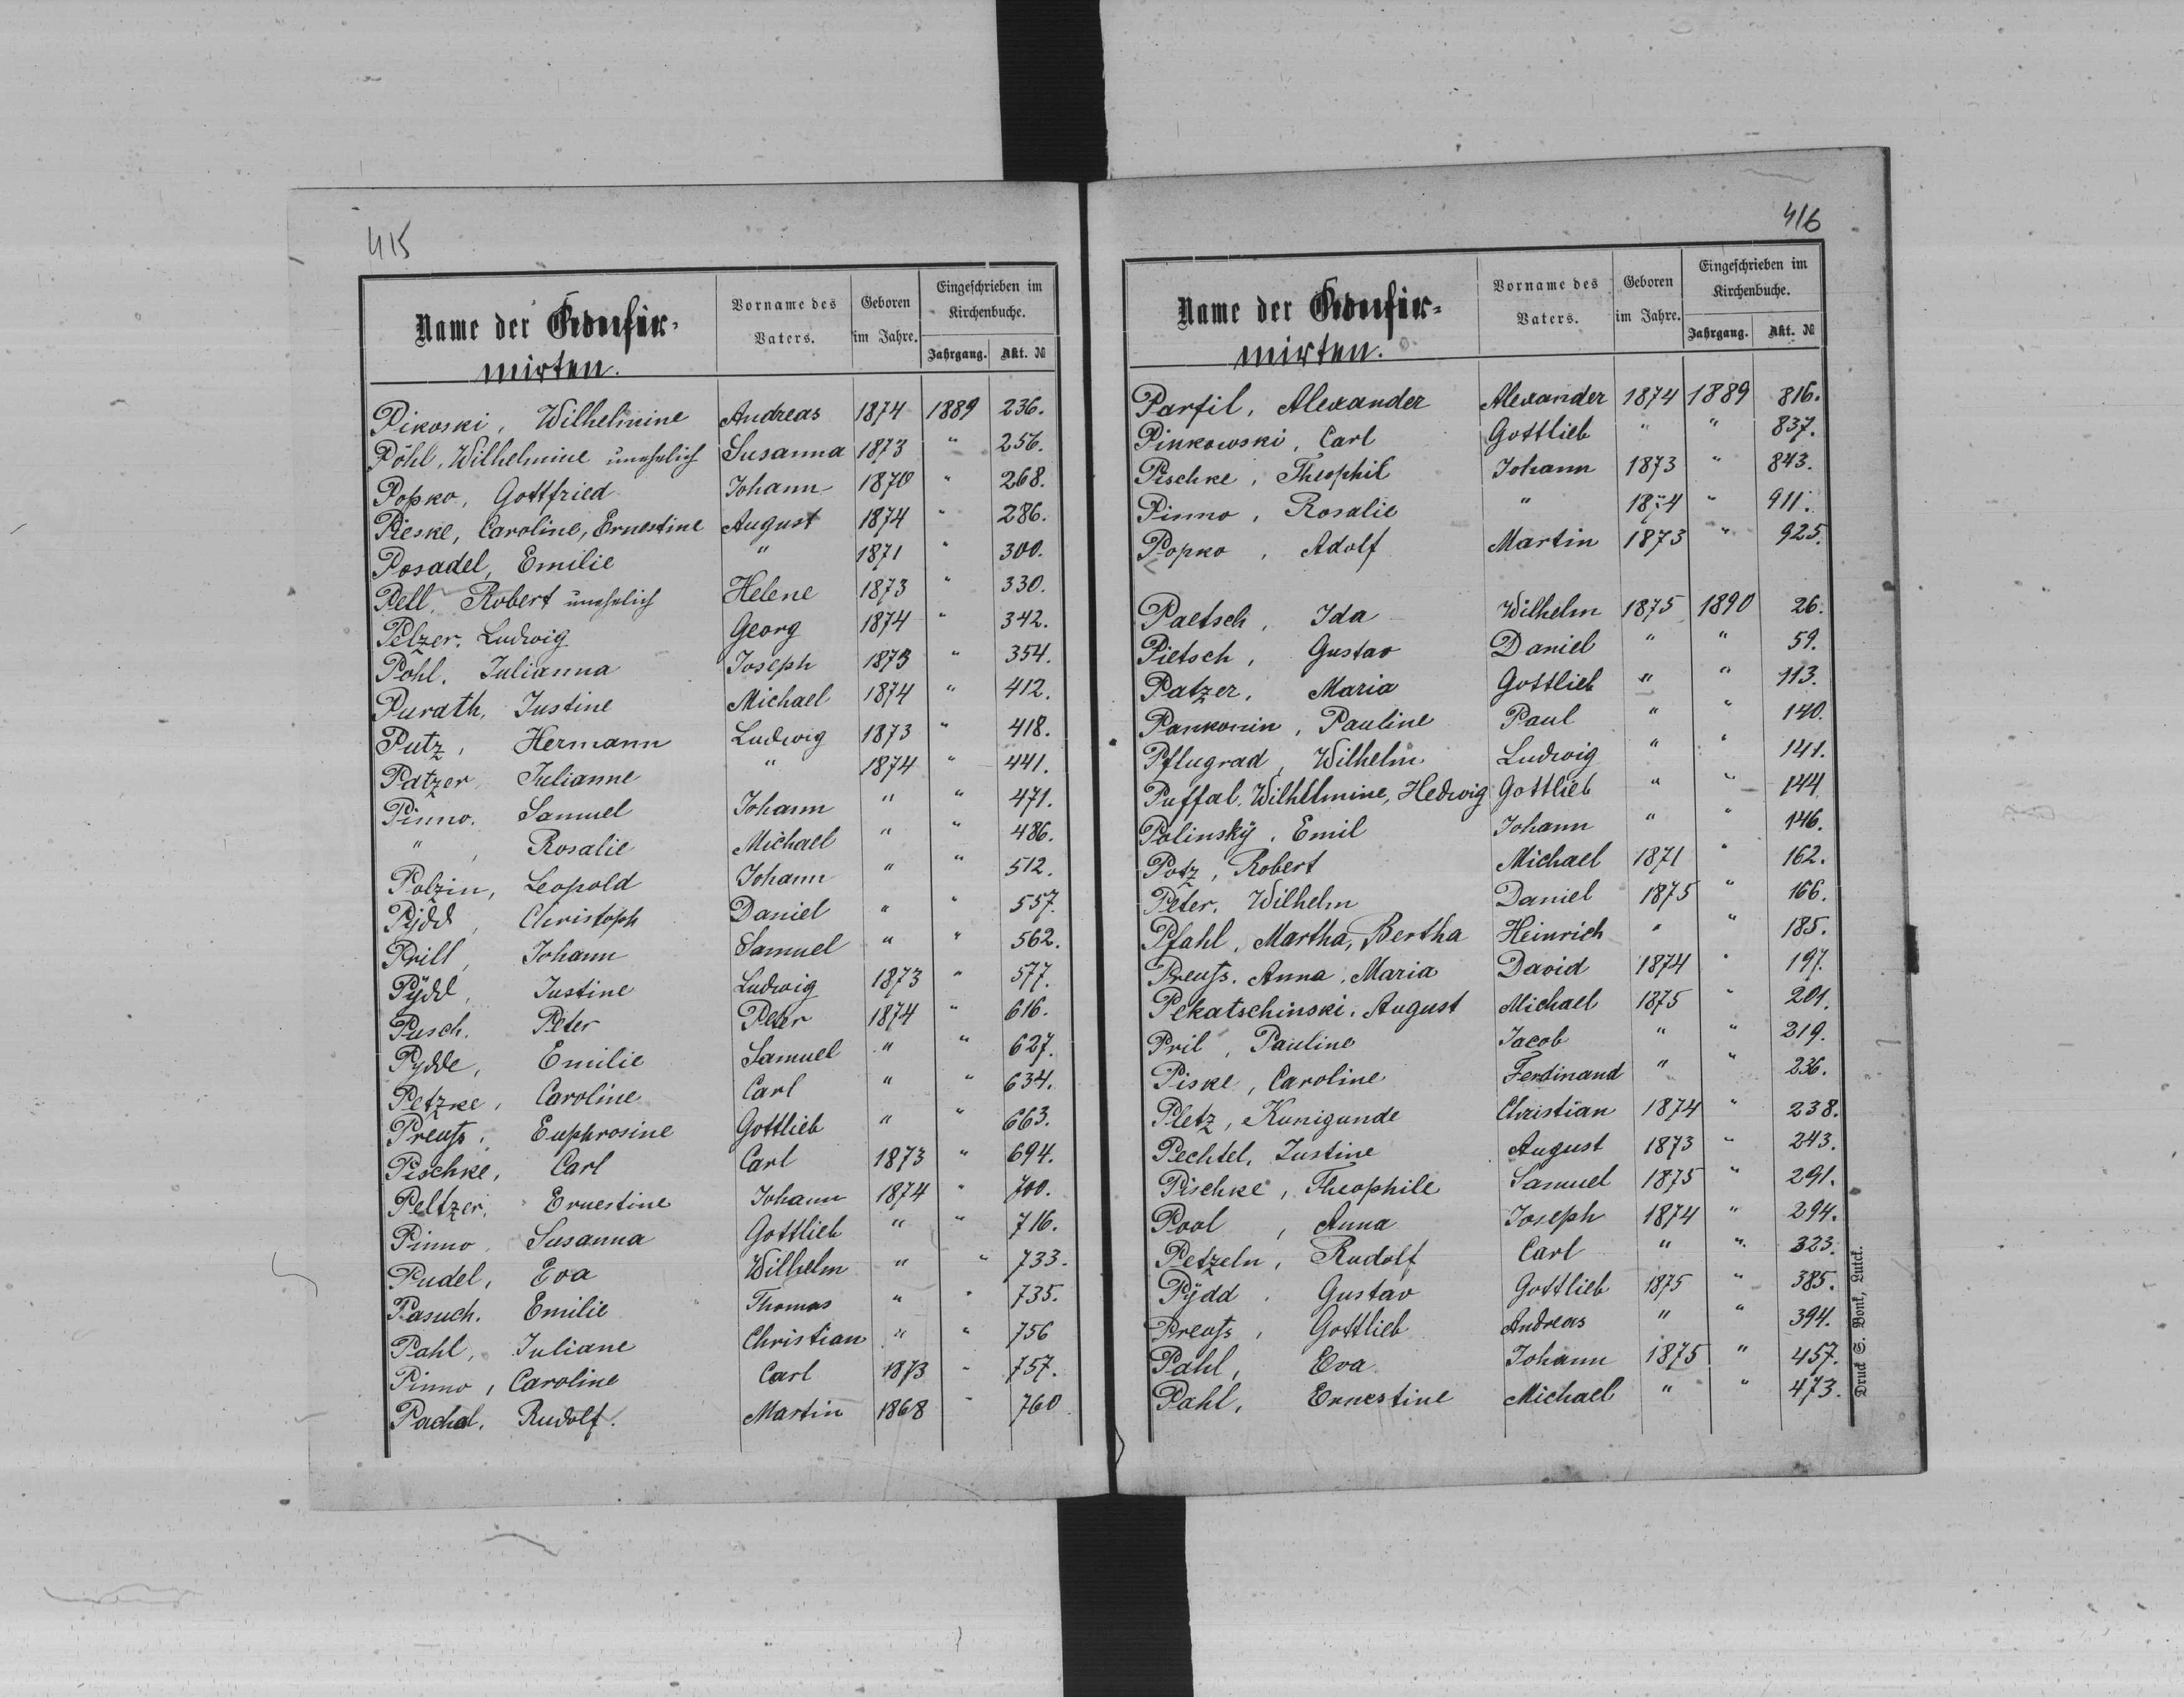 415
Name der Confir-
mirten.
Vorname des
Vaters.
Geboren
im Jahre.
Eingeschrieben im
Kirchenbuche.
Jahrgang. Akt. №
Pikoski, Wilhelmine Andreas 1874 1889 236.
Pöhl, Wilhelmine unehelich Susanna 1873 " 256.
Popko, Gottfried Johann 1870 " 268.
Pieske, Caroline, Ernestine August 1874 " 286.
Posadel, Emilie " 1871 " 300.
Pell, Robert unehelich Helene 1873 " 330.
Pelzer. Ludwig Georg 1874 " 342.
Pöhl. Julianna Joseph 1873 " 354.
Purath, Justine Michael 1874 " 412.
Putz, Hermann Ludwig 1873 " 418.
Patzer, Julianne " 1874 " 441.
Pinno. Samuel Johann " " 471.
" , Rosalie Michael " " 486.
Polzin, Leopold Johann " " 512.
Pÿdd, Christoph Daniel " " 557.
Prill, Johann Samuel " " 562.
Pÿdd, Justine Ludwig 1873 " 577.
Pusch. Peter Peter 1874 " 616.
Pydde, Emilie Samuel " " 627.
Petzke, Caroline Carl " " 634.
Preuß, Euphrosine Gottlieb " " 663.
Pischke, Carl Carl 1873 " 694.
Peltzer, Ernestine Johann 1874 " 700.
Pinno, Susanna Gottlieb " " 716.
Pudel, Eva Wilhelm " " 733.
Pasuch. Emilie Thomas " " 735.
Pahl, Juliane Christian " " 756
Pinno, Caroline Carl 1873 " 757.
Pachal, Rudolf. Martin 1868 " 760
416
Name der Confir-
mirten.
Vorname des
Vaters.
Geboren
im Jahre.
Eingeschrieben im
Kirchenbuche.
Jahrgang. Akt. №
Parfil, Alexander Alexander 1874 1889 816.
Pinkowski, Carl Gottlieb " " 837.
Pischke, Theophil Johann 1873 " 843.
Pinno, Rosalie " 1874 " 911.
Popko, Adolf Martin 1873 " 925.
Paetsch, Ida Wilhelm 1875 1890 26.
Pietsch, Gustav Daniel " " 59.
Patzer, Maria Gottlieb " " 113.
Pankonin, Pauline Paul " " 140.
Pflugrad, Wilhelm Ludwig " " 141.
Puffal. Wilhelmine, Hedwig Gottlieb " " 144
Polinskÿ, Emil Johann " " 146.
Potz, Robert Michael 1871 " 162.
Peter. Wilhelm Daniel 1875 " 166.
Pfahl, Martha, Bertha Heinrich " " 185.
Preuß. Anna, Maria David 1874 " 197.
Pekatschinski. August Michael 1875 " 201.
Pril, Pauline Jacob " " 219.
Piske, Caroline Ferdinand " " 236.
Pletz, Kunigunde Christian 1874 " 238.
Pechtel, Justine August 1873 " 243.
Pischke, Theophile Samuel 1875 " 291.
Pool, Anna Joseph 1874 " 294.
Petzeln, Rudolf Carl " " 323.
Pÿdd, Gustav Gottlieb 1875 " 385.
Preuß, Gottlieb Andreas " " 394.
Pahl, Eva Johann 1875 " 457.
Pahl, Ernestine Michael " " 473.
Druck S. Bonk, Luck.